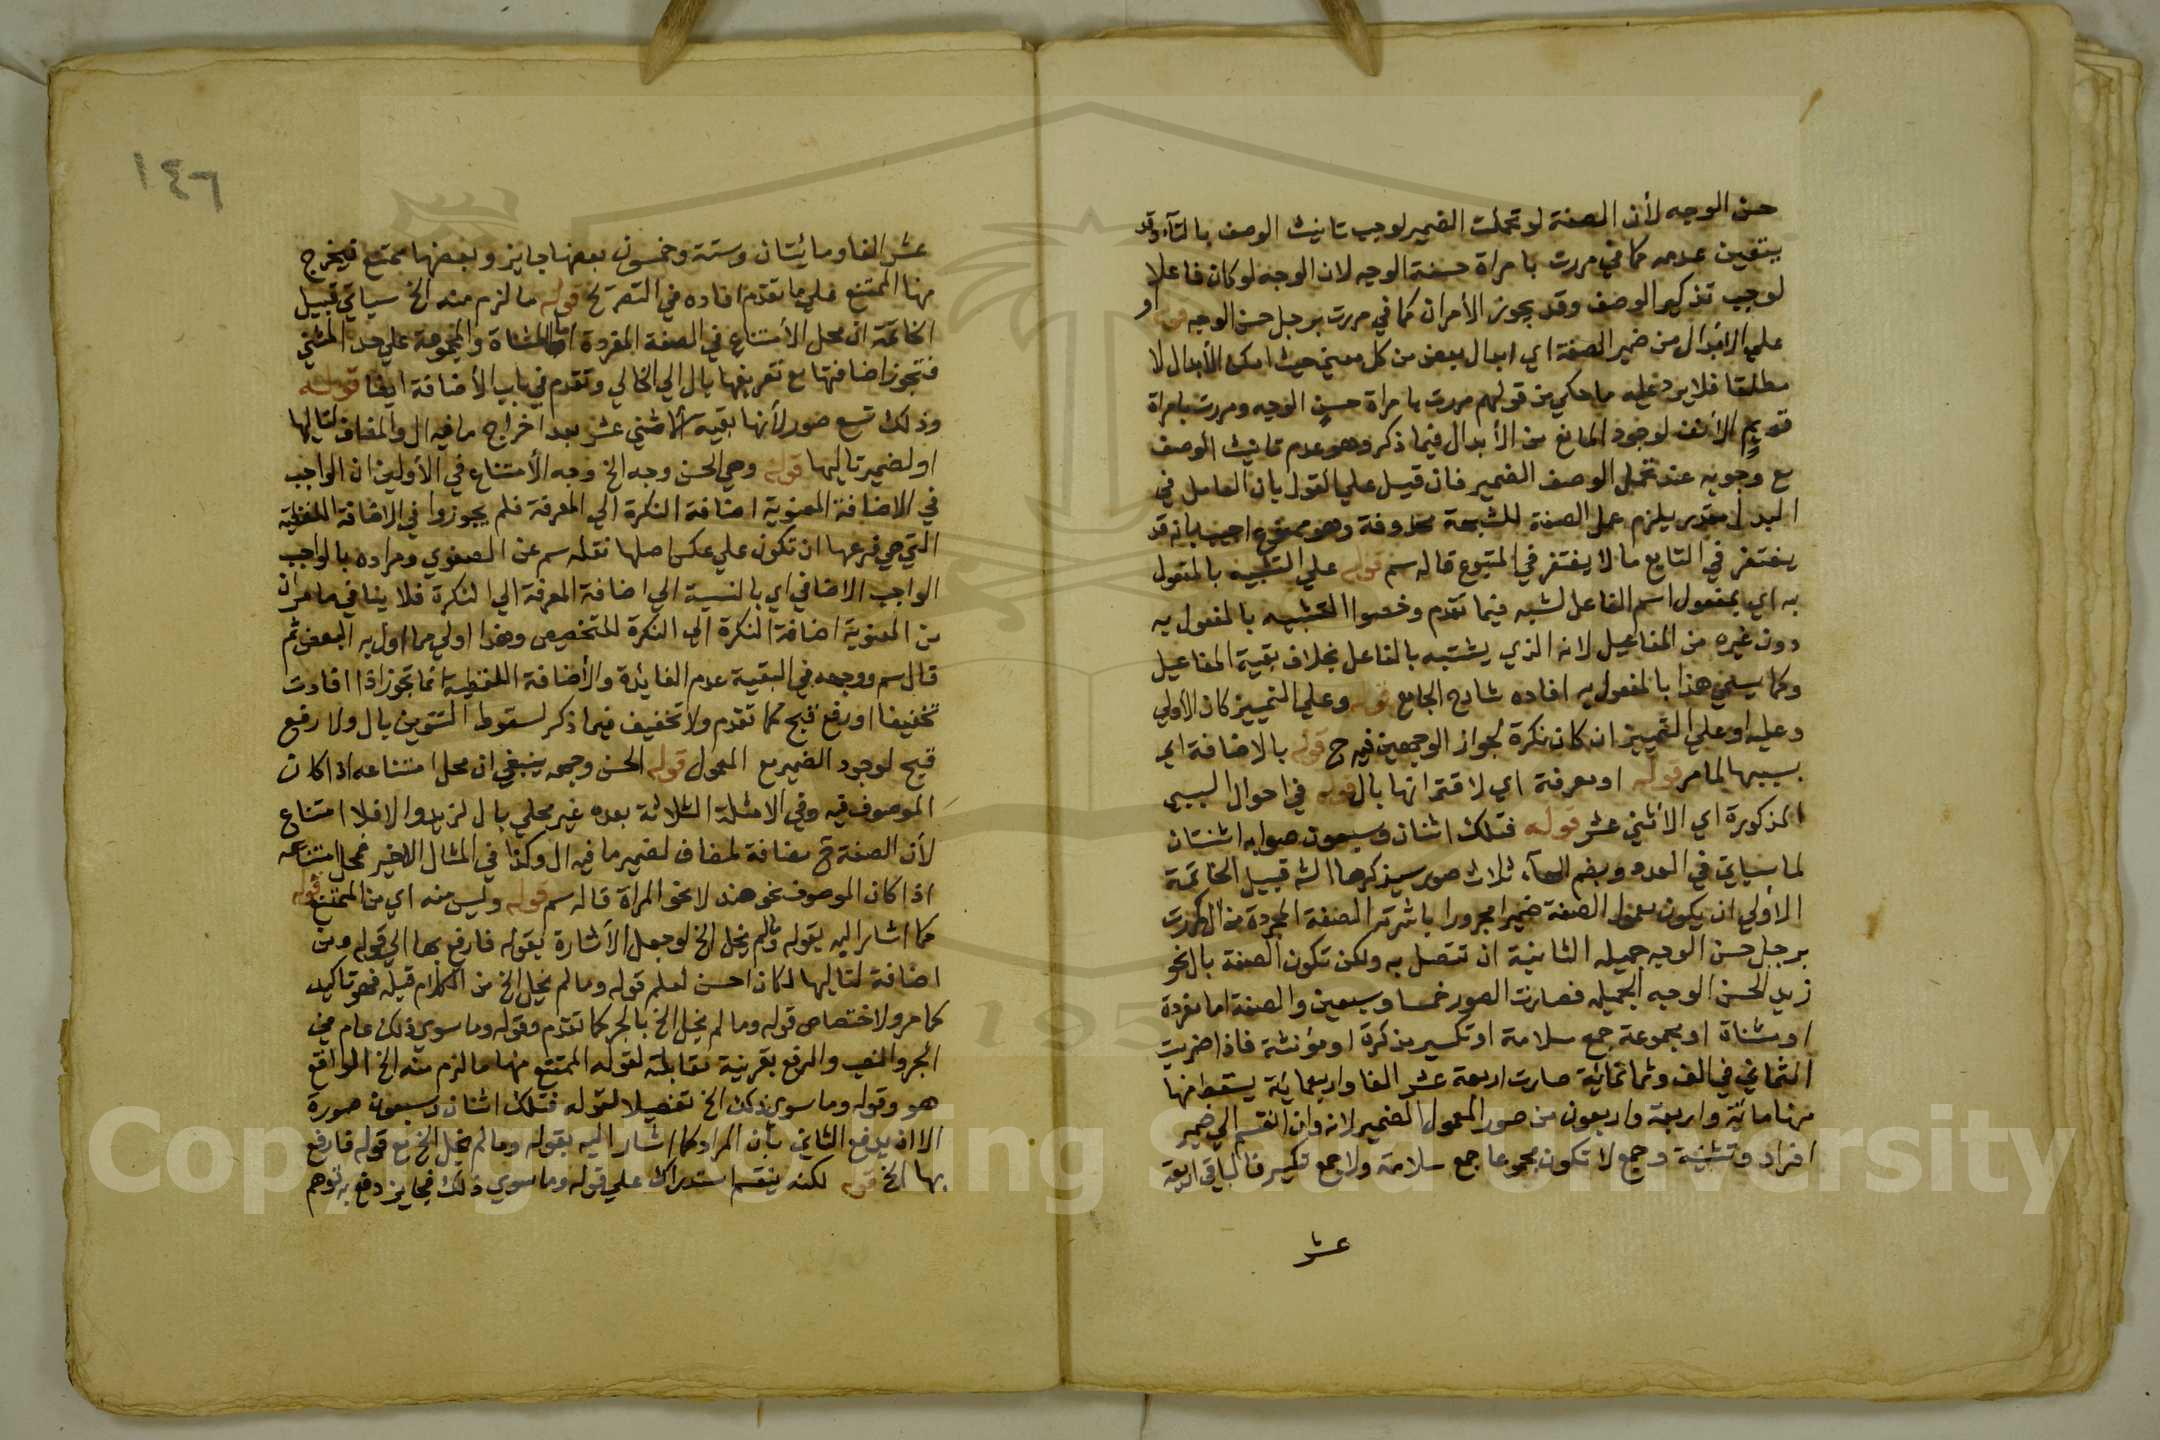 حسن الوجه لأن الصفة لو تحملت الضمير لوجب تانيث الوصف بالتآء وقد
يتعين عدمه كما في مررت بامراة حسنة الوجه لان الوجه لو كان فاعلا
لوجب تذكير الوصف وقد يجوز الأمران كما في مررت برجل حسن الوجه قوله او
علي الابدال من ضمير الصفة اي ابدال بعض من كل معني حيث امكن الأبدال لا
مطلقا فلا يرد عليه ما حكي من قولهم مررت بامراة حسن الوجه ومررت بامراة
قويم الأنف لوجود المانع من الأبدال فيما ذكر وهو عدم تانيث الوصف
مع وجوبه عند تحمل الوصف الضمير فان قيل علي القول بان العامل في
البدل مقدر يلزم عمل الصفة المشبهة محذوفة وهو ممنوع اجيب بانه قد
يغتفر في التابع ما لا يغتفر في المتبوع قاله سم قوله علي التشبيه بالمفعول
به اي بمفعول اسم الفاعل لشبه فيما تقدم وخصوا التشبيه بالمفعول به
دون غيره من المفاعيل لانه الذي يشتبه بالفاعل بخلاف بقية المفاعيل
وكما يسمي هذا بالمفعول به افاده شارح الجامع قوله وعلي التمييز كان الاولي
وعليه او علي التمييز ان كان نكرة لجواز الوجهين فيه ح قوله بالاضافة اي
بسببها لما مر قوله او معرفة اي لاقترانها بال قوله في احوال السببي
المذكورة اي الأثني عشر قوله فتلك اثنان وسبعون صوابه اثنتان
لما سياتي في العدد وبضم اليهآ ثلاث صور سيذكرها الش قبيل الخاتمة
الأولي ان يكون معمول الصفة ضميرا مجرورا باشرته الصفة المجردة من ال كمررت
برجل حسن الوجه جميله الثانية ان تتصل به ولكن تكون الصفة بال نحو
زيد الحسن الوجه الجميله فصارت الصور خمسا وسبعين والصفة اما مفردة
او مثناة او مجموعة جمع سلامة او تكسير مذكرة او مؤنثة فاذا ضربت
الثماني في الف وثمانمائة صارت اربعة عشر الفا واربعمائة يسقط منها
منها مائة واربعة واربعون من صور المعمول الضمير لانه وان انقسم الي ضمير
افراد وتثنية وجمع لا تكون مجموعا جمع سلامة ولا جمع تكسير فالباقي اربعة
عشر
١٤٦
عشر الفا ومائيتان وستة وخمسون بعضها جايز وبعضها ممتنع فيخرج
منها الممتنع علي ما تقدم افاده في التصريح قوله ما لزم منه الخ سياتي قبيل
الخاتمة ان محل الأمتناع في الصفة المفردة اما المثناة والمجموعة علي حد المثني
فتجوز اضافتها مع تعريفها بال الي الخالي وتقدم في باب الأضافة ايضا قوله
وذلك تسع صور لأنها بقية الأثني عشر بعد اخراج ما فيه ال والمضاف لتاليها
او لضمير تاليها قوله وهي الحسن وجه الخ وجه الأمتناع في الأولين ان الواجب
في الاضافة المعنوية اضافة النكرة الي المعرفة فلم يجوزوا في الاضافة اللفظية
التي هي فرعها ان تكون علي عكس اصلها نقله سم عن الصفوي ومراده بالواجب
الواجب الاضافي اي بالنسبة الي اضافة المعرفة الي النكرة فلا ينافي ما مر ان
من المعنوية اضافة النكرة الي النكرة للتخصيص وهذا اولي مما اول به البعض ثم
قال سم ووجهه في البقية عدم الفائدة والأضافة اللفظية انما تجوز اذا افادت
تخفيفا او رفع قبح كما تقدم ولا تخفيف فيما ذكر لسقوط التنوين بال ولا رفع
قبح لوجود الضمير مع المعمول قوله الحسن وجهه ينبغي ان محل امتناعه اذا كان
الموصوف فيه وفي الامثلة الثلاثة بعده غير محلي بال لزيد والا فلا امتناع
لأن الصفة ح مضافة لمضاف لضمير ما فيه ال وكذا في المثال الاخير فمحل امتناعه
اذا كان الموصوف نحو هند لا نحو المراة قاله سم قوله وليس منه اي من الممتنع قوله
كما اشار اليه بقوله ولم يخل الخ لو جعل الأشارة بقوله فارفع بها الي قوله ومن
اضافة لتاليها لكان احسن لعلم قوله وما لم يخل الخ من الكلام قبله فهو تاكيد
كما مر ولاختصاص قوله وما لم يخل الخ بالجر كما تقدم وقوله وما سوي ذلك عام في
الجر والنصب والرفع بقرينة مقابلته لقوله الممتنع منها ما لزم منه الخ الواقع
هو وقوله وما سوي ذلك الخ تفصيلا لقوله فتلك اثنان وسبعون صورة
الا ان يدفع الثاني بأن المراد كما اشار اليه بقوله وما لم يخل الخ مع قوله فارفع
بها الخ قوله لكنه ينقسم استدراك علي قوله وما سوي ذلك فجايز دفع به توهم